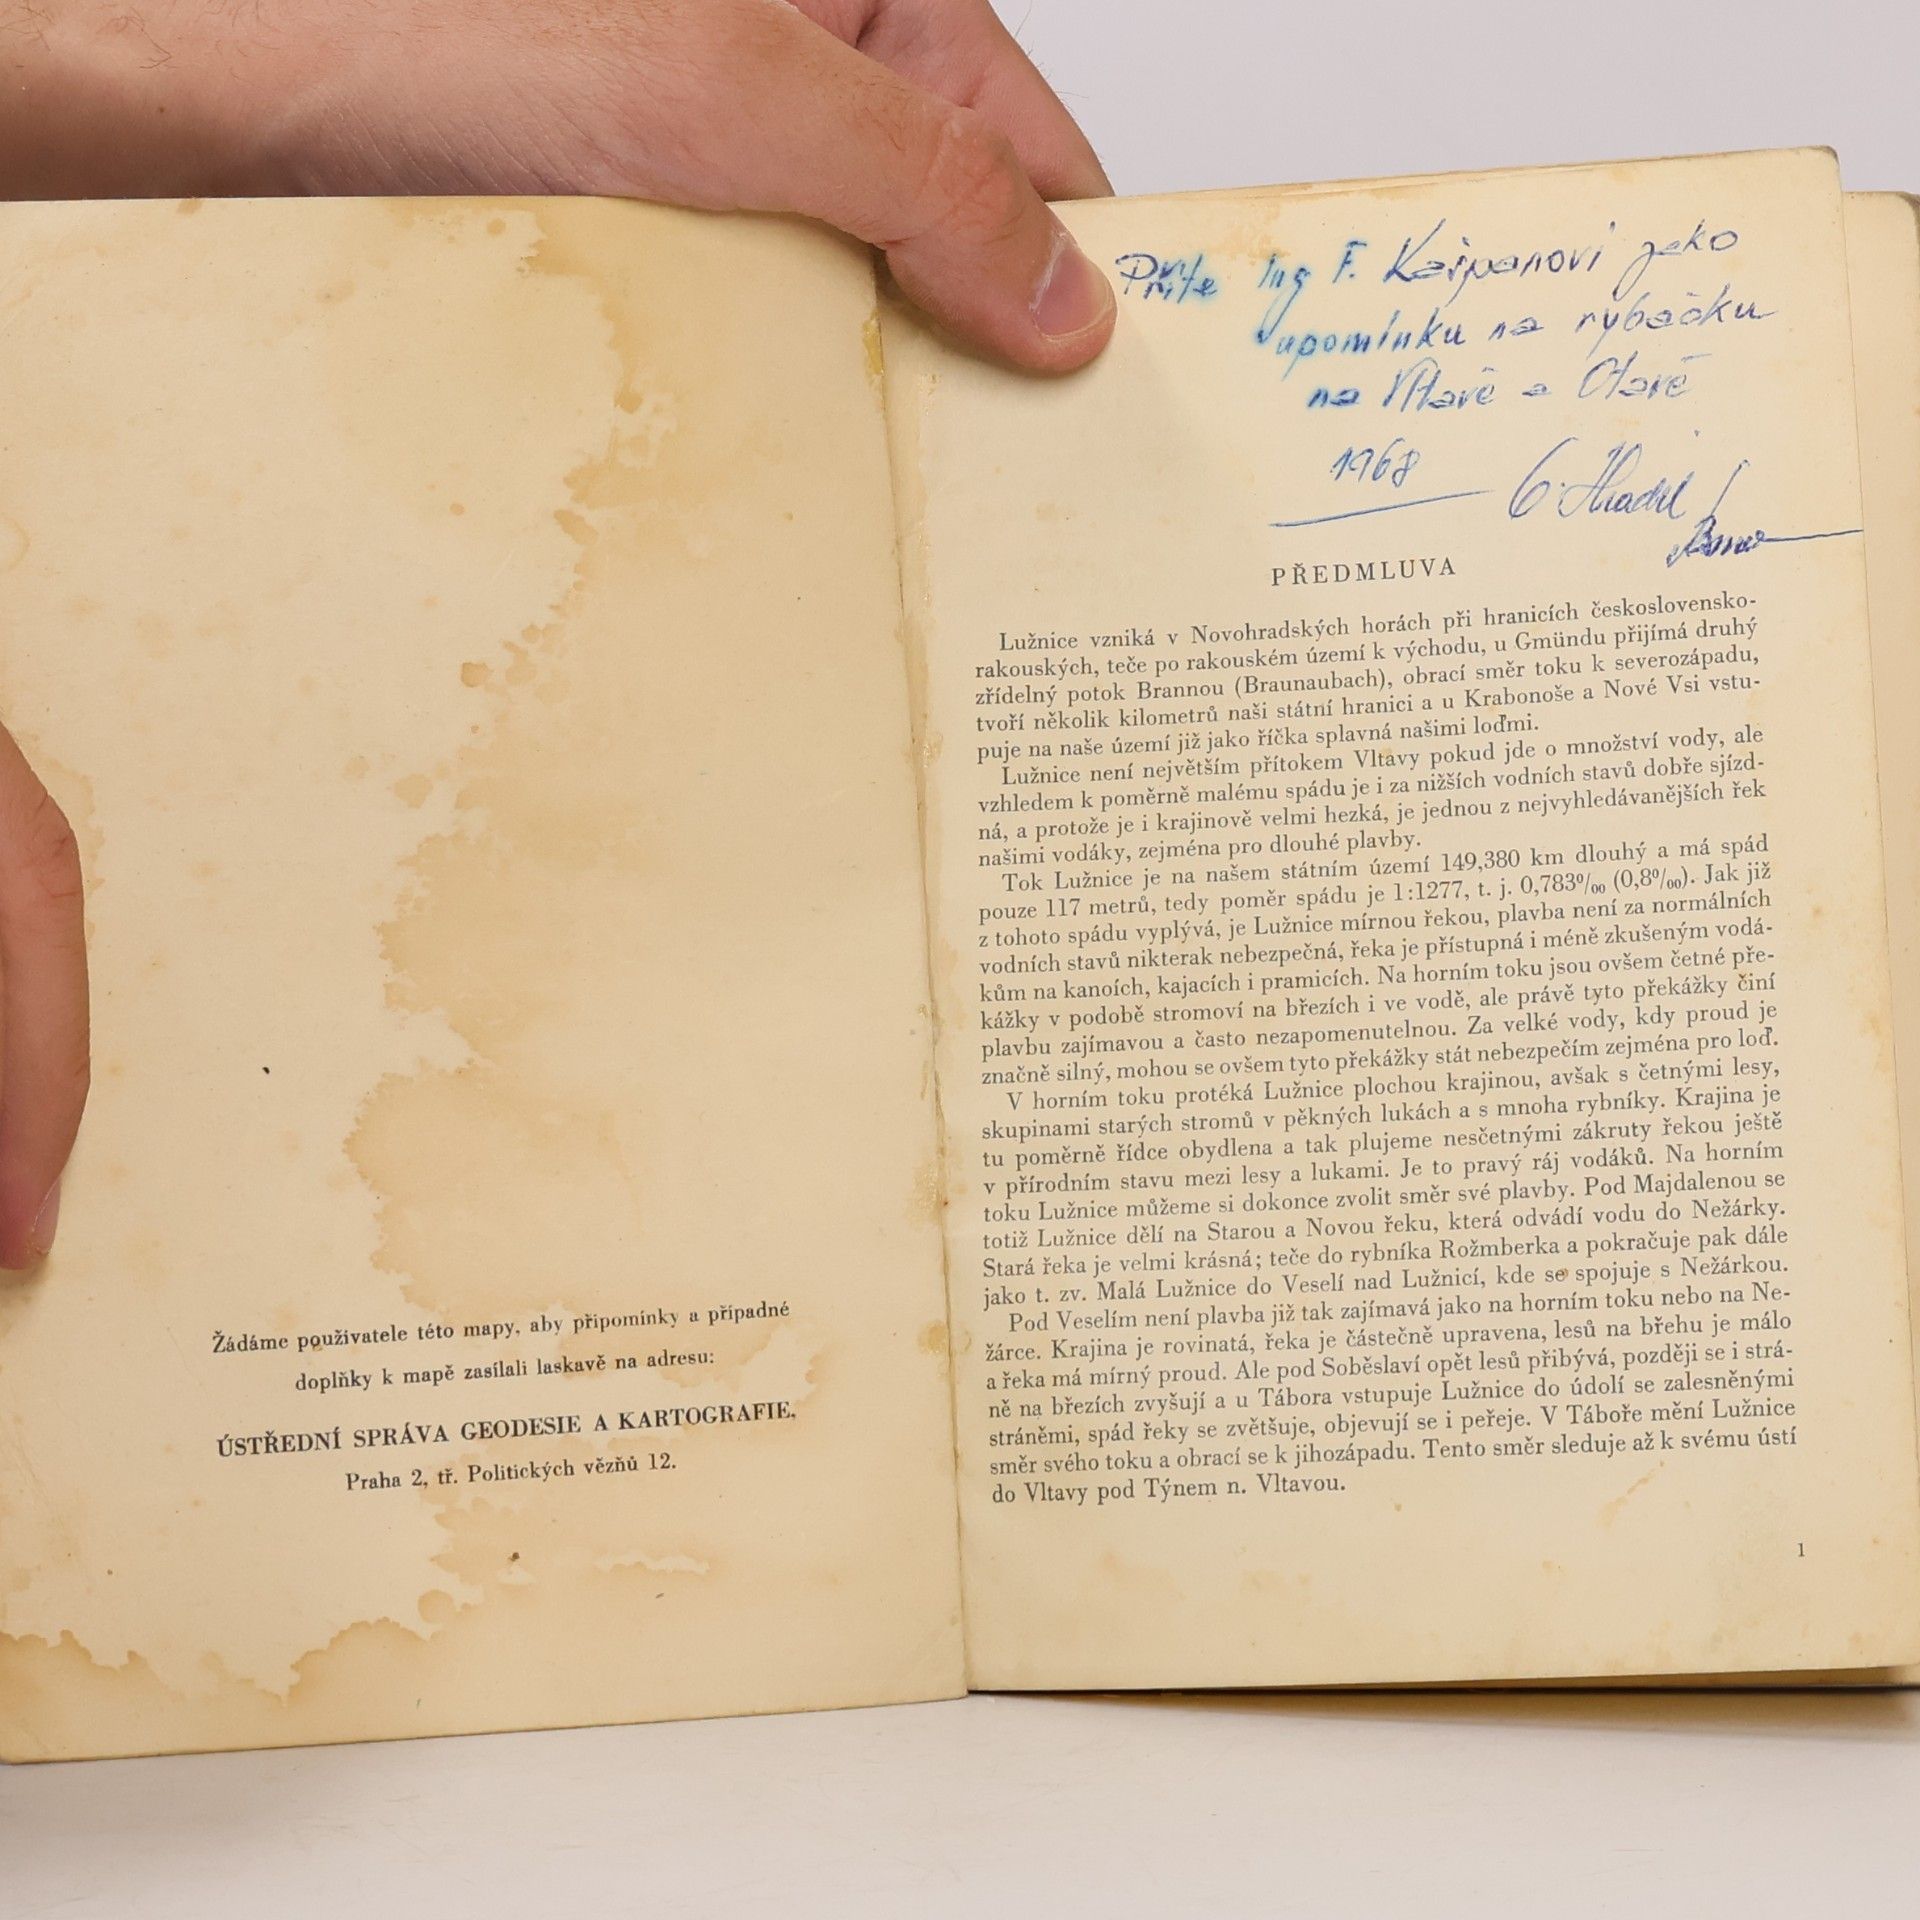 Žádáme použivatele této mapy, aby připomínky a případné
doplňky k mapě zasílali laskavě na adresu:
ÚSTŘEDNÍ SPRÁVA GEODESIE A KARTOGRAFIE,
Praha 2, tř. Politických vězňů 12.
Ing F. Kašpanovi jako
upomínku na rybačku
na Vltavě a Otavě
1968
Hradil
PŘEDMLUVA
Lužnice vzniká v Novohradských horách při hranicích československo-
rakouských, teče po rakouském území k východu, u Gmündu přijímá druhý
zřídelný potok Brannou (Braunaubach), obrací směr toku k severozápadu,
tvoří několik kilometrů naši státní hranici a u Krabonoše a Nové Vsi vstu-
puje na naše území již jako říčka splavná našimi loďmi.
Lužnice není největším přítokem Vltavy pokud jde o množství vody, ale
vzhledem k poměrně malému spádu je i za nižších vodních stavů dobře sjízd-
ná, a protože je i krajinově velmi hezká, je jednou z nejvyhledávanějších řek
našimi vodáky, zejména pro dlouhé plavby.
Tok Lužnice je na našem státním území 149,380 km dlouhý a má spád
pouze 117 metrů, tedy poměr spádu je 1:1277, t. j. 0,783‰ (0,8‰). Jak již
z tohoto spádu vyplývá, je Lužnice mírnou řekou, plavba není za normálních
vodních stavů nikterak nebezpečná, řeka je přístupná i méně zkušeným vodá-
kům na kanoích, kajacích i pramicích. Na horním toku jsou ovšem četné pře-
kážky v podobě stromoví na březích i ve vodě, ale právě tyto překážky činí
plavbu zajímavou a často nezapomenutelnou. Za velké vody, kdy proud je
značně silný, mohou se ovšem tyto překážky stát nebezpečím zejména pro loď.
V horním toku protéká Lužnice plochou krajinou, avšak s četnými lesy,
skupinami starých stromů v pěkných lukách a s mnoha rybníky. Krajina je
tu poměrně řídce obydlena a tak plujeme nesčetnými zákruty řekou ještě
v přírodním stavu mezi lesy a lukami. Je to pravý ráj vodáků. Na horním
toku Lužnice můžeme si dokonce zvolit směr své plavby. Pod Majdalenou se
totiž Lužnice dělí na Starou a Novou řeku, která odvádí vodu do Nežárky.
Stará řeka je velmi krásná; teče do rybníka Rožmberka a pokračuje pak dále
jako t. zv. Malá Lužnice do Veselí nad Lužnicí, kde se spojuje s Nežárkou.
Pod Veselím není plavba již tak zajímavá jako na horním toku nebo na Ne-
žárce. Krajina je rovinatá, řeka je částečně upravena, lesů na břehu je málo
a řeka má mírný proud. Ale pod Soběslaví opět lesů přibývá, později se i strá-
ně na březích zvyšují a u Tábora vstupuje Lužnice do údolí se zalesněnými
stráněmi, spád řeky se zvětšuje, objevují se i peřeje. V Táboře mění Lužnice
směr svého toku a obrací se k jihozápadu. Tento směr sleduje až k svému ústí
do Vltavy pod Týnem n. Vltavou.
1